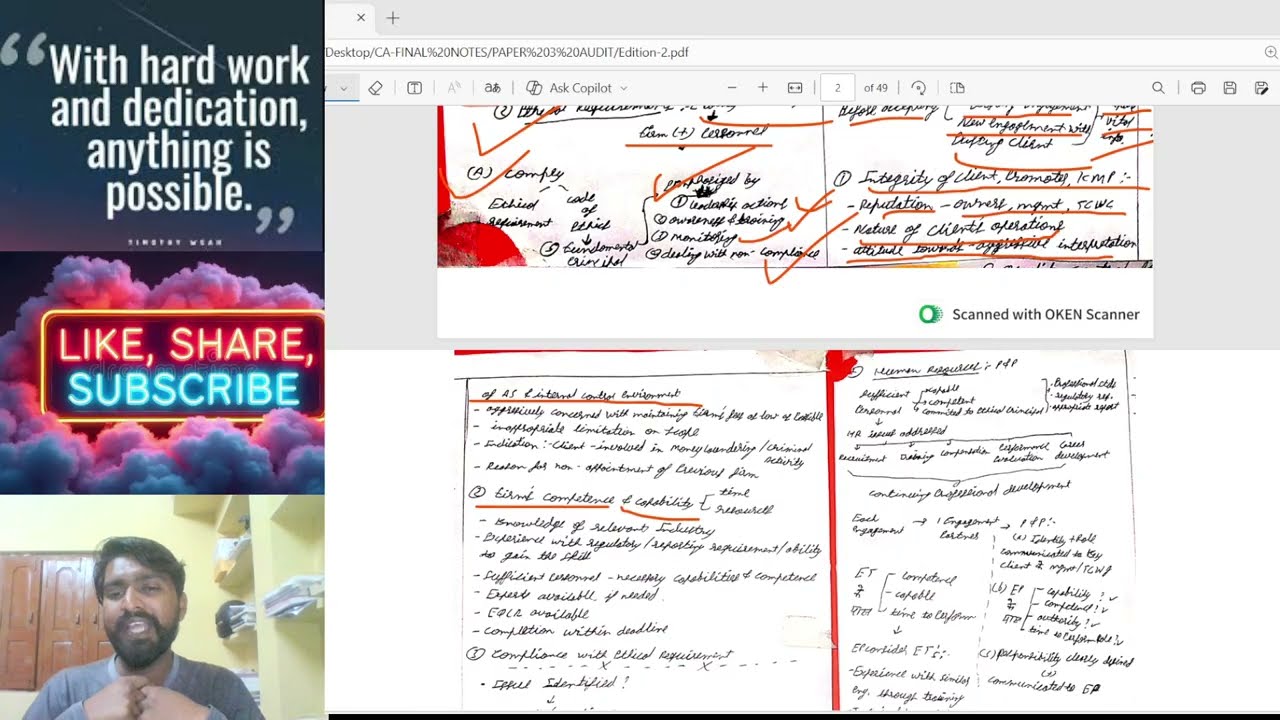 “With hard work
and dedication,
anything is
possible.”
TIMOTHY WEAH
LIKE, SHARE,
SUBSCRIBE
/Desktop/CA-FINAL%20NOTES/PAPER%203%20AUDIT/Edition-2.pdf
Ask Copilot
2 of 49
Before accepting
New Engagement with
Existing Client
firm (+) Personnel
(A) Comply
Ethical requirement
code of Ethics
5 fundamental Principal
emphasized by
① leadership actions
② awareness & training
③ monitoring
④ dealing with non-compliance
① Integrity of client, Promoter, KMP :-
- Reputation - owners, mgmt, TCWG
- Nature of Client's operations
- attitude towards aggressive interpretation
Scanned with OKEN Scanner
of AS & internal control environment
- aggressively concerned with maintaining firm's fees as low as Possible
- inappropriate limitation on scope
- Indication :- Client - involved in Money laundering / criminal
activity
- Reason for non-appointment of Previous firm
② firm's competence & capability
time
resources
- Knowledge of relevant Industry
- Experience with regulatory / reporting requirement / ability
to gain the skill
- Sufficient Personnel - necessary capabilities & competence
- Experts available if needed.
- EQCR available
- Completion within deadline
③ Compliance with Ethical Requirement
- Issue Identified?
Human Resources :- P&P
Sufficient Personnel
capable
competent
committed to ethical principal
Professional stds
regulatory req.
appropriate report
HR issues addressed
Recruitment Training Compensation Performance evaluation Career development
Continuing Professional development
Each Engagement → 1 Engagement Partner → P&P :-
(a) Identity + Role
communicated to Key
Client's mgmt / TCWG
ET
competence
capable
time to Perform
(b) EP
capability?
competence?
authority?
time to Perform role?
EP consider, ET's :-
- Experience with similar
eng. through training
(c) Responsibility clearly defined
communicated to EP